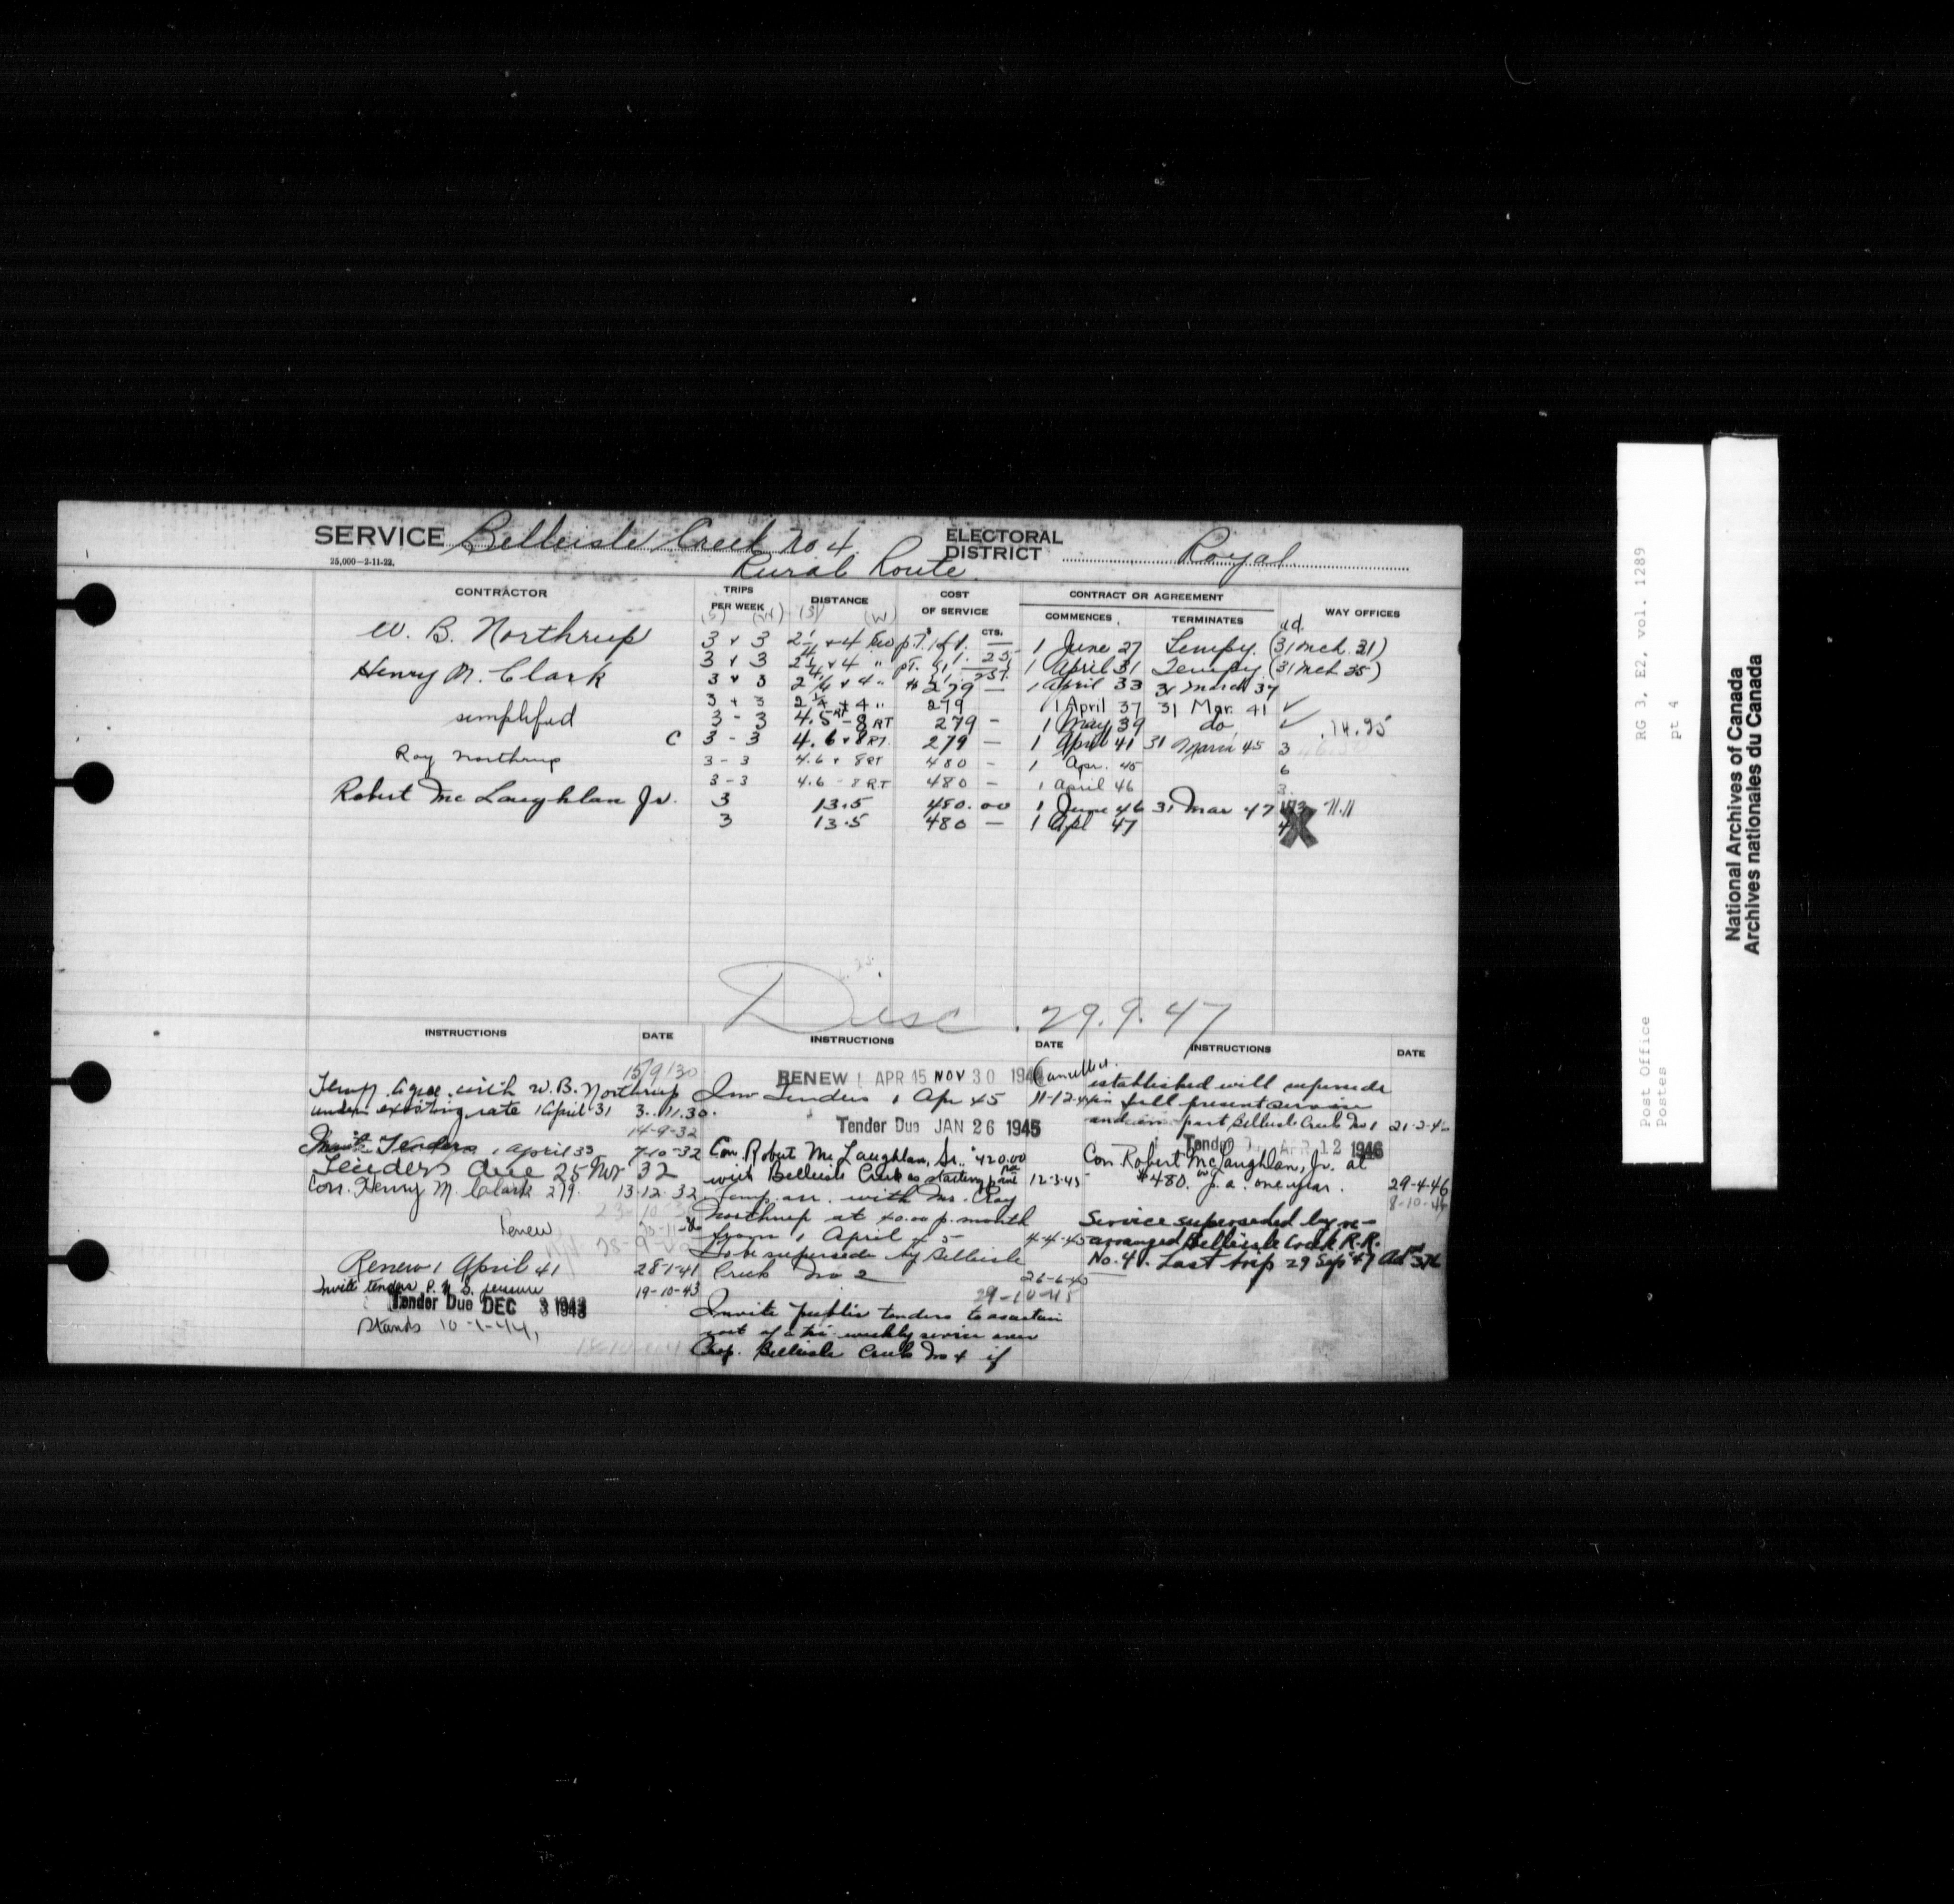 SERVICE Belleisle Creek No 4 ELECTORAL DISTRICT Royal
25,000—2-11-22.
Rural Route
CONTRACTOR TRIPS PER WEEK DISTANCE COST OF SERVICE CONTRACT OR AGREEMENT WAY OFFICES
COMMENCES TERMINATES
(S) (W) (S) (W) CTS. ad.
W. B. Northrup 3 + 3 2¼ + 4 1 June 27 Tempy. (31 Mch 31)
3 + 3 2¼ + 4 " 1 April 31 Tempy (31 Mch 35)
Henry M. Clark 3 + 3 2¼ + 4 " $279 — 1 April 33 31 March 37
3 + 3 2¼ + 4 " 279 1 April 37 31 Mar. 41 ✓
simplified 3 - 3 4.5 RT - 8 RT 279 - 1 May 39 do ✓ 14.95
C 3 - 3 4.6 + 8 RT. 279 — 1 April 41 31 March 45 3
Roy Northrup 3 - 3 4.6 + 8 RT 480 - 1 Apr. 45 6
3 - 3 4.6 - 8 RT 480 - 1 April 46 3.
Robert McLaughlan Jr. 3 13.5 480.00 1 June 46 31 Mar 47
3 13.5 480 — 1 Apl 47
Disc. 29.9.47
INSTRUCTIONS DATE INSTRUCTIONS DATE INSTRUCTIONS DATE
15/9/30
Temp. Agree. with W. B. Northrup
under existing rate 1 April 31 3.11.30.
14-9-32
Invite Tenders 1 April 33 7-10-32
Tenders due 25 Nov 32
Con. Henry M. Clark 279. 13-12-32
Renew
Renew 1 April 41 28-1-41
Invite tenders 19-10-43
Tender Due DEC 3 1943
Stands 10-1-44,
RENEW 1 APR 45 NOV 30 1944 Cancelled.
Inv Tenders 1 Apr 45 11-12-44
Tender Due JAN 26 1945
Con. Robert McLaughlan, Sr., 420.00
with Belleisle Creek as starting point 12-3-45
Temp. arr. with Mr. Roy
Northrup at 40.00 p. month
from 1 April 45 4-4-45
To be superseded by Belleisle
Creek No 2 26-6-45
29-10-45
Invite public tenders to ascertain
cost of a tri-weekly service over
Prop. Belleisle Creek No 4 if
established will supersede
in full present service
and in part Belleisle Creek No 1 21-2-46
Tender APR 12 1946
Con. Robert McLaughlan, Jr. at
$480. p.a. one year. 29-4-46
8-10-46
Service superseded by re-
arranged Belleisle Creek R.R.
No. 4. Last trip 29 Sep 47
RG 3, E2, vol. 1289
pt 4
Post Office
Postes
National Archives of Canada
Archives nationales du Canada